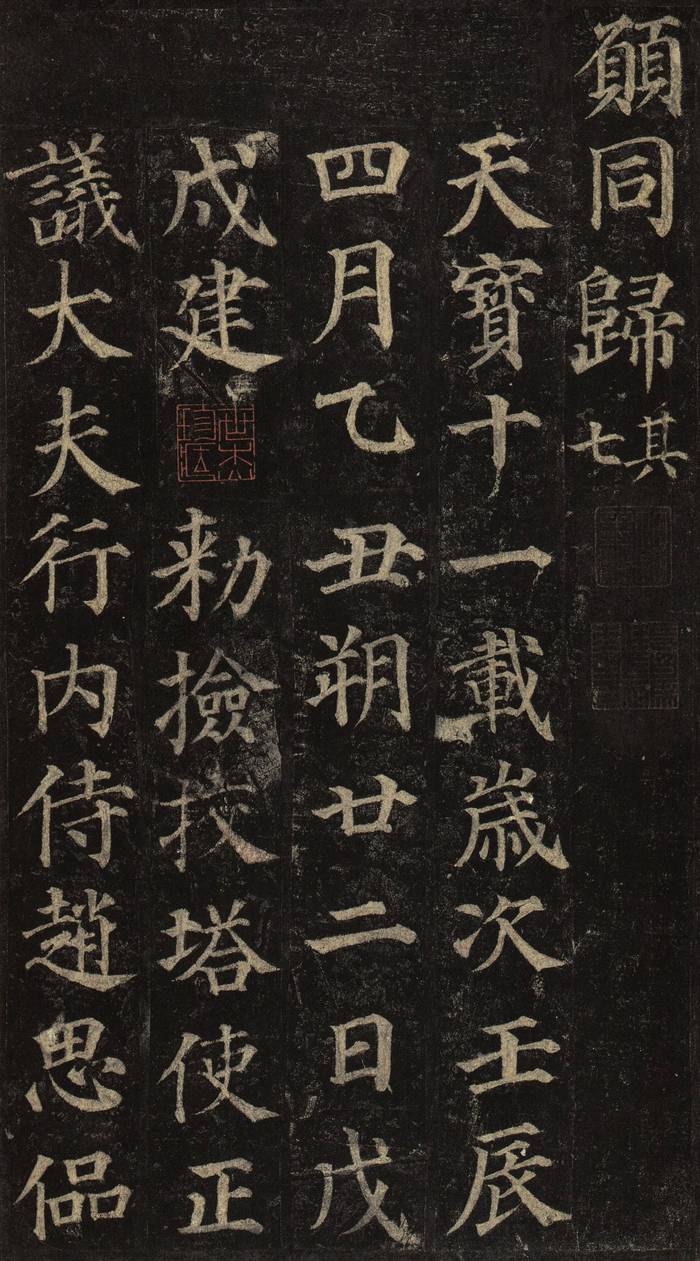 願同歸其七
天寶十一載歲次壬辰
四月乙丑朔廿二日戊
戌建勑撿挍塔使正
議大夫行内侍趙思偘